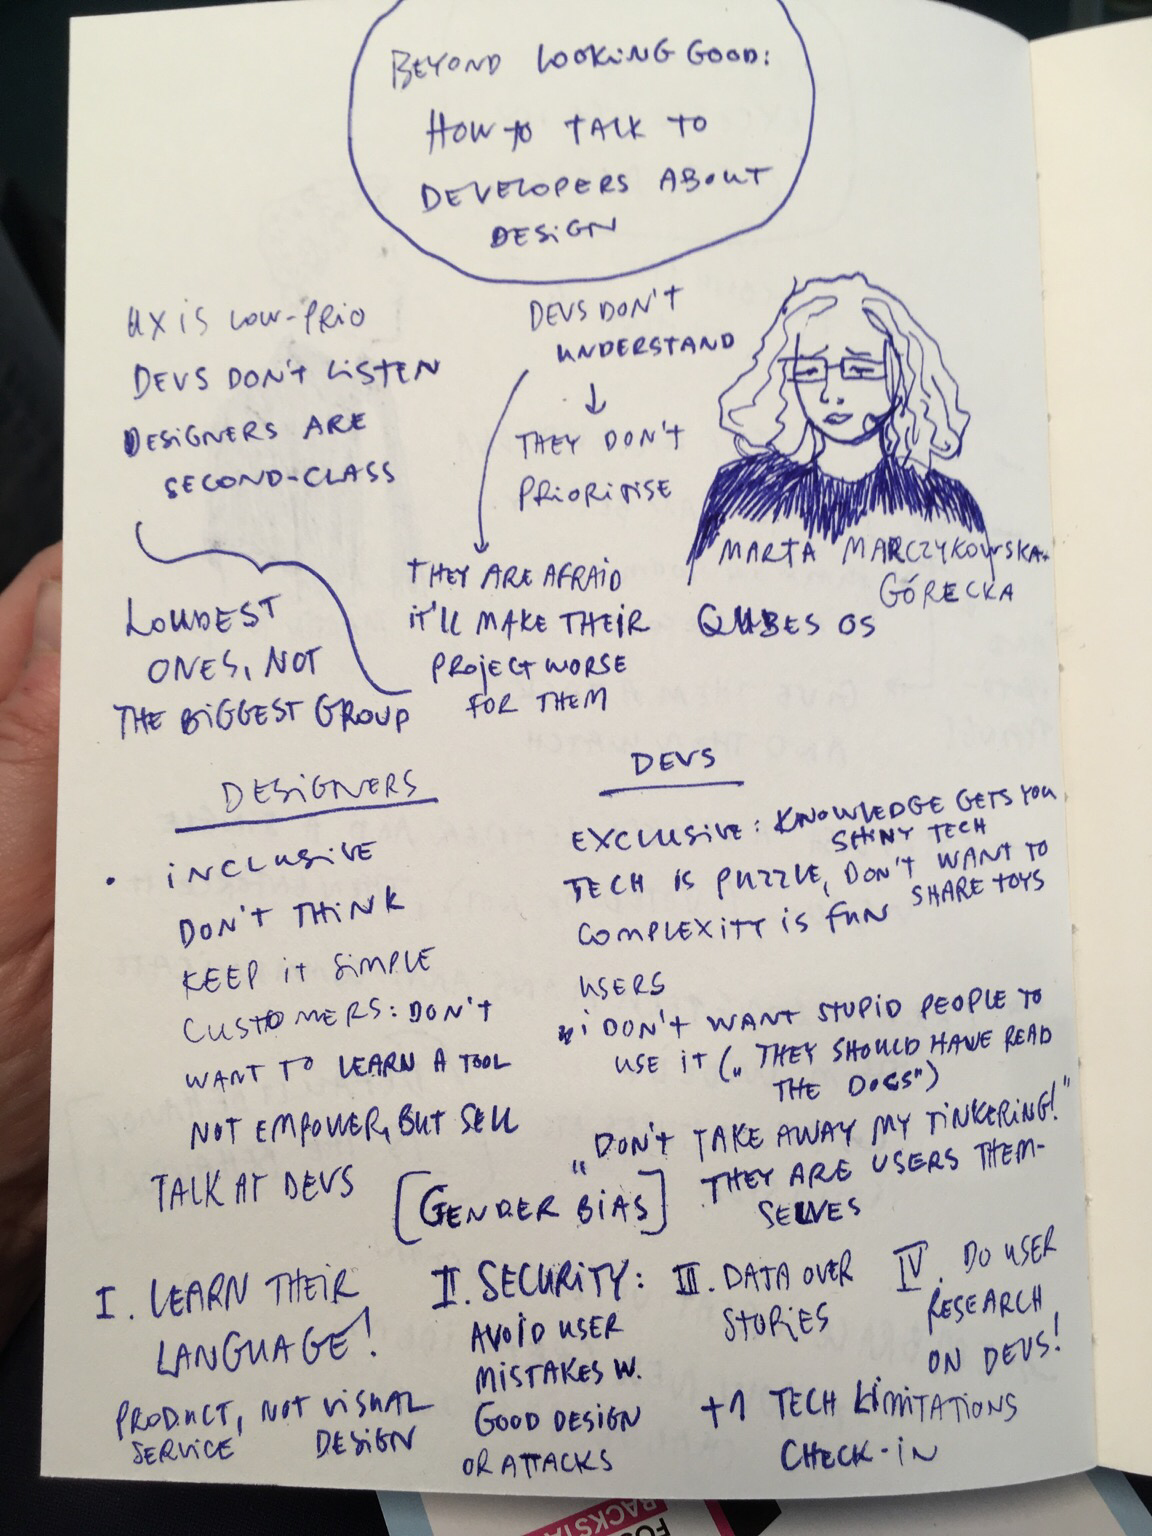 BEYOND LOOKING GOOD:
HOW TO TALK TO
DEVELOPERS ABOUT
DESIGN
UX IS LOW-PRIO
DEVS DON'T LISTEN
DESIGNERS ARE
SECOND-CLASS
LOUDEST
ONES, NOT
THE BIGGEST GROUP
DEVS DON'T
UNDERSTAND
THEY DON'T
PRIORITISE
THEY ARE AFRAID
IT'LL MAKE THEIR
PROJECT WORSE
FOR THEM
MARTA MARCZYKOWSKA-
GÓRECKA
QUBES OS
DESIGNERS
• INCLUSIVE
DON'T THINK
KEEP IT SIMPLE
CUSTOMERS: DON'T
WANT TO LEARN A TOOL
NOT EMPOWER, BUT SELL
TALK AT DEVS
[GENDER BIAS]
DEVS
EXCLUSIVE: KNOWLEDGE GETS YOU
SHINY TECH
TECH IS PUZZLE, DON'T WANT TO
SHARE TOYS
COMPLEXITY IS FUN
USERS
I DON'T WANT STUPID PEOPLE TO
USE IT („THEY SHOULD HAVE READ
THE DOCS")
„DON'T TAKE AWAY MY TINKERING!"
THEY ARE USERS THEM-
SELVES
I. LEARN THEIR
LANGUAGE!
PRODUCT, NOT VISUAL
SERVICE DESIGN
II. SECURITY:
AVOID USER
MISTAKES W.
GOOD DESIGN
OR ATTACKS
III. DATA OVER
STORIES
IV. DO USER
RESEARCH
ON DEVS!
+1 TECH LIMITATIONS
CHECK-IN